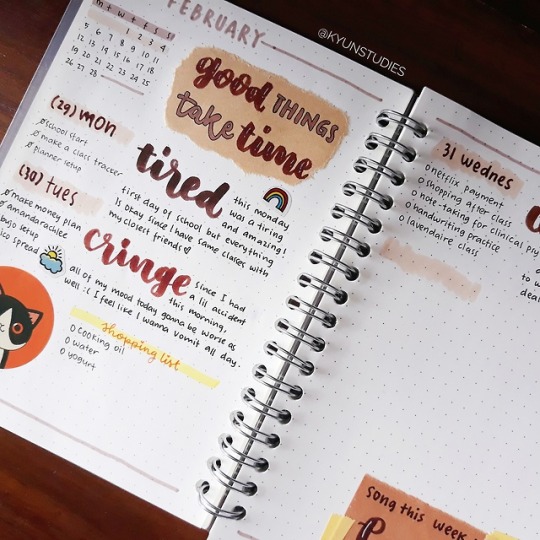 FEBRUARY
@KYUNSTUDIES
m t w t f s s
1 2 3 4
5 6 7 8 9 10 11
12 13 14 15 16 17 18
19 20 21 22 23 24 25
26 27 28
good THINGS
take time
(29) mon
school start
make a class tracker
planner setup
tired
this monday
was a tiring
and amazing!
first day of school but everything
is okay since I have same classes with
my closest friends
(30) tues
make money plan
amandarachlee
bujo setup
spread
cringe
since I had
a lil accident
this morning,
all of my mood today gonna be worse as
well :( I feel like I wanna vomit all day.
shopping list
o cooking oil
o water
o yogurt
31 wednes
o netflix payment
o shopping after class
o note-taking for clinical psy
o handwriting practice
o lavendaire class
to w
deal
song this week